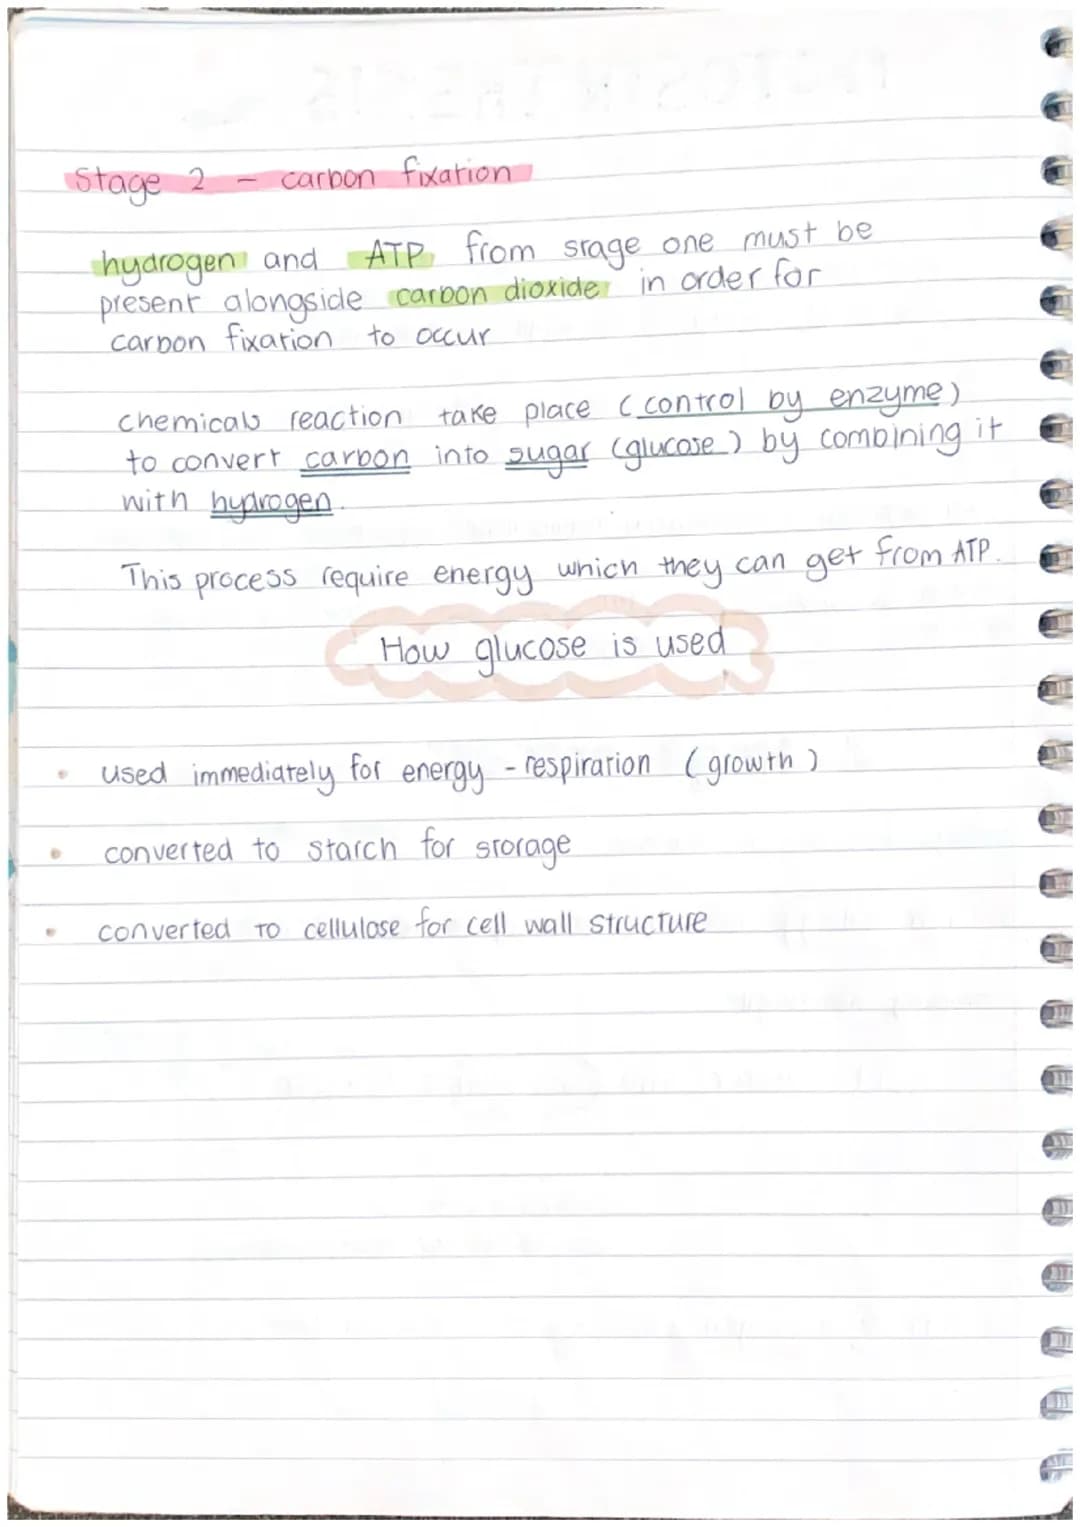 Stage 2 - carbon fixation
hydrogen and ATP from stage one must be
present alongside carbon dioxide in order for
carbon fixation to occur
chemicals reaction take place (control by enzyme)
to convert carbon into sugar (glucose) by combining it
with hydrogen.
This process require energy which they can get from ATP.
How glucose is used
• used immediately for energy - respiration (growth)
• converted to starch for storage
• converted to cellulose for cell wall structure